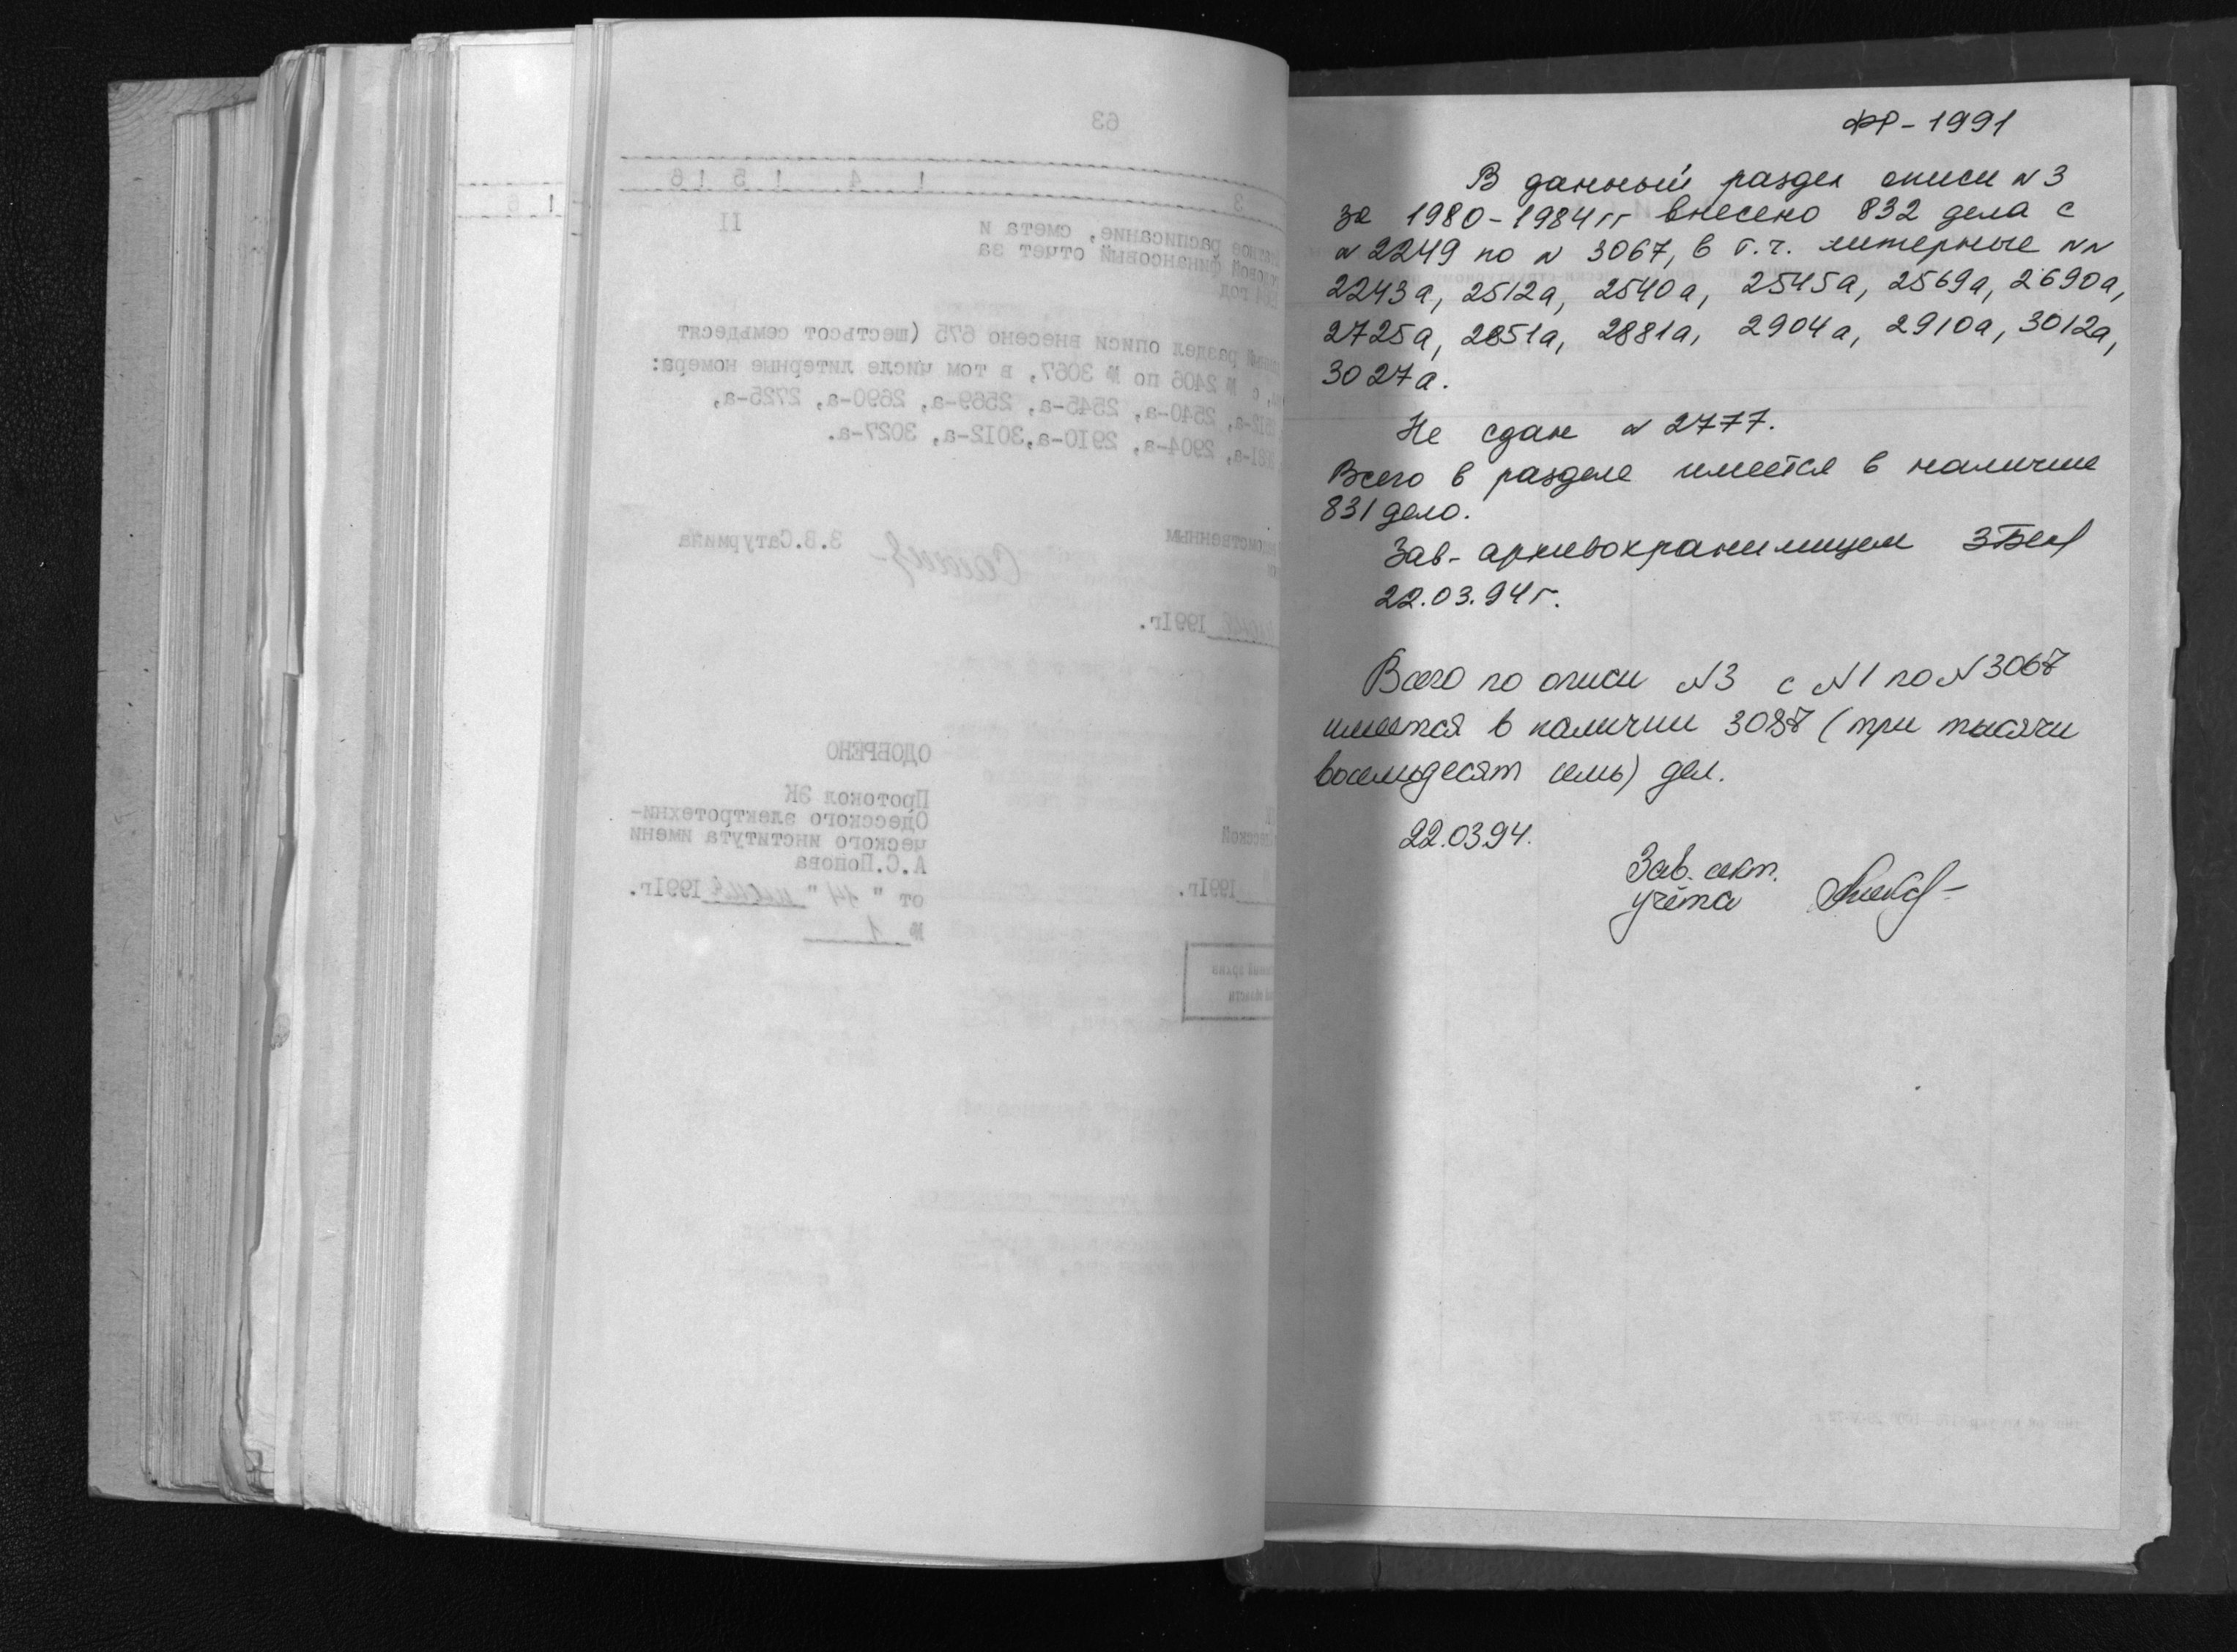 63
3 ! 4 ! 5 ! 6
расписание, смета и II
финансовый отчет за
год
раздел описи внесено 675 (шестьсот семьдесят
с № 2406 по № 3067, в том числе литерные номера:
2540-а, 2545-а, 2569-а, 2690-а, 2725-а,
2904-а, 2910-а, 3012-а, 3027-а.
З.В.Сатурмина
1991г.
ОДОБРЕНО
Протокол ЭК
Одесского электротехни-
ческого института имени
А.С.Попова
от " 14 " июня 1991г.
№ 1
1991г.
ФР-1991
В данный раздел описи N 3
за 1980-1984 гг внесено 832 дела с
N 2249 по N 3067, в т.ч. литерные NN
2243а, 2512а, 2540а, 2545а, 2569а, 2690а,
2725а, 2851а, 2881а, 2904а, 2910а, 3012а,
3027а.
Не сдан N 2777.
Всего в разделе имеется в наличие
831 дело.
Зав. архивохранилищем
22.03.94г.
Всего по описи N3 с N1 по N3067
имеется в наличии 3087 (три тысячи
восемьдесят семь) дел.
22.03.94.
Зав. сект.
учёта